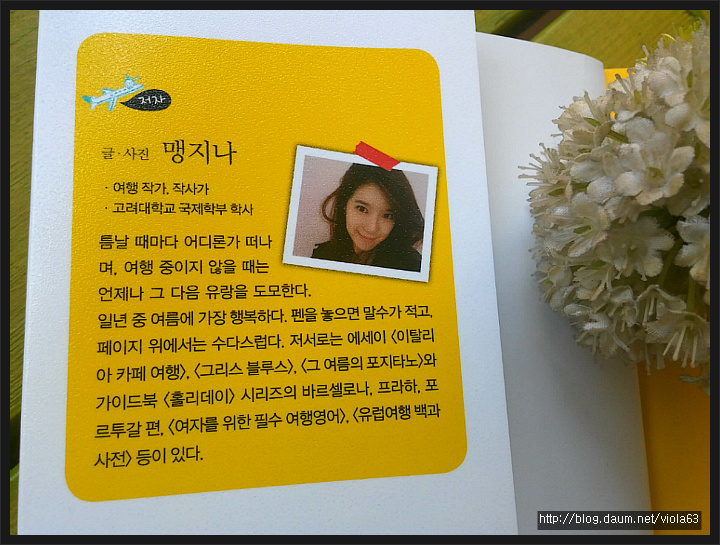 저자
글·사진 맹지나
· 여행 작가, 작사가
· 고려대학교 국제학부 학사
틈날 때마다 어디론가 떠나
며, 여행 중이지 않을 때는
언제나 그 다음 유랑을 도모한다.
일년 중 여름에 가장 행복하다. 펜을 놓으면 말수가 적고,
페이지 위에서는 수다스럽다. 저서로는 에세이 〈이탈리
아 카페 여행〉, 〈그리스 블루스〉, 〈그 여름의 포지타노〉와
가이드북 〈홀리데이〉 시리즈의 바르셀로나, 프라하, 포
르투갈 편, 〈여자를 위한 필수 여행영어〉, 〈유럽여행 백과
사전〉 등이 있다.
http://blog.daum.net/viola63